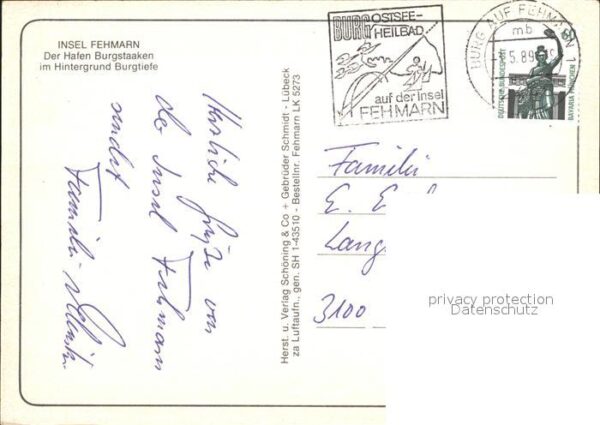 INSEL FEHMARN
Der Hafen Burgstaaken
im Hintergrund Burgtiefe
BURG OSTSEE-
HEILBAD
auf der Insel
FEHMARN
BURG AUF FEHMARN 1
mb
5.89
DEUTSCHE BUNDESPOST
BAVARIA MÜNCHEN
Herzliche Grüße von
der Insel Fehmarn
sendet
Familie
Herst. u. Verlag Schöning & Co + Gebrüder Schmidt - Lübeck
za Luftaufn., gen. SH 1-43510 - Bestellnr. Fehmarn LK 5273
Familie
E.
Lang
3100
privacy protection
Datenschutz